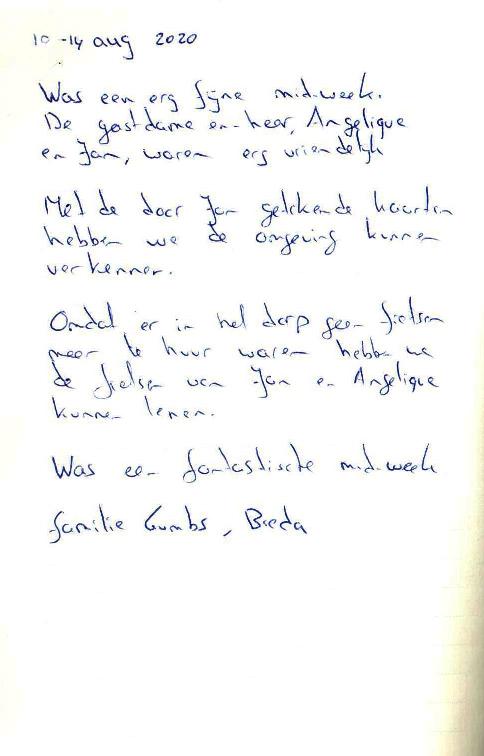 10-14 aug 2020
Was een erg fijne mid-week.
De gastdame en-heer, Angelique
en Jan, waren erg vriendelijk
Met de door Jan getekende kaarten
hebben we de omgeving kunnen
verkennen.
Omdat er in het dorp geen fietsen
meer te huur waren hebben we
de fietsen van Jan en Angelique
kunnen lenen.
Was een fantastische mid-week
familie Gumbs, Breda